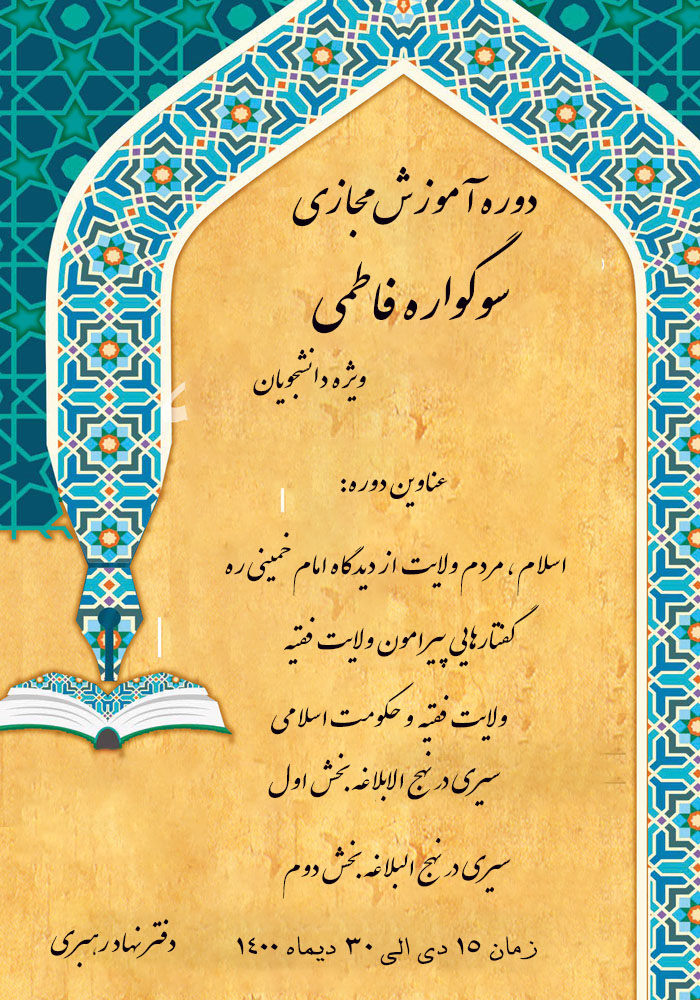 دوره آموزش مجازی
سوگواره فاطمی
ویژه دانشجویان
عناوین دوره:
اسلام ، مردم ولایت از دیدگاه امام خمینی ره
گفتارهایی پیرامون ولایت فقیه
ولایت فقیه و حکومت اسلامی
سیری در نهج الابلاغه بخش اول
سیری در نهج البلاغه بخش دوم
زمان ۱۵ دی الی ۳۰ دیماه ۱۴۰۰
دفتر نهاد رهبری